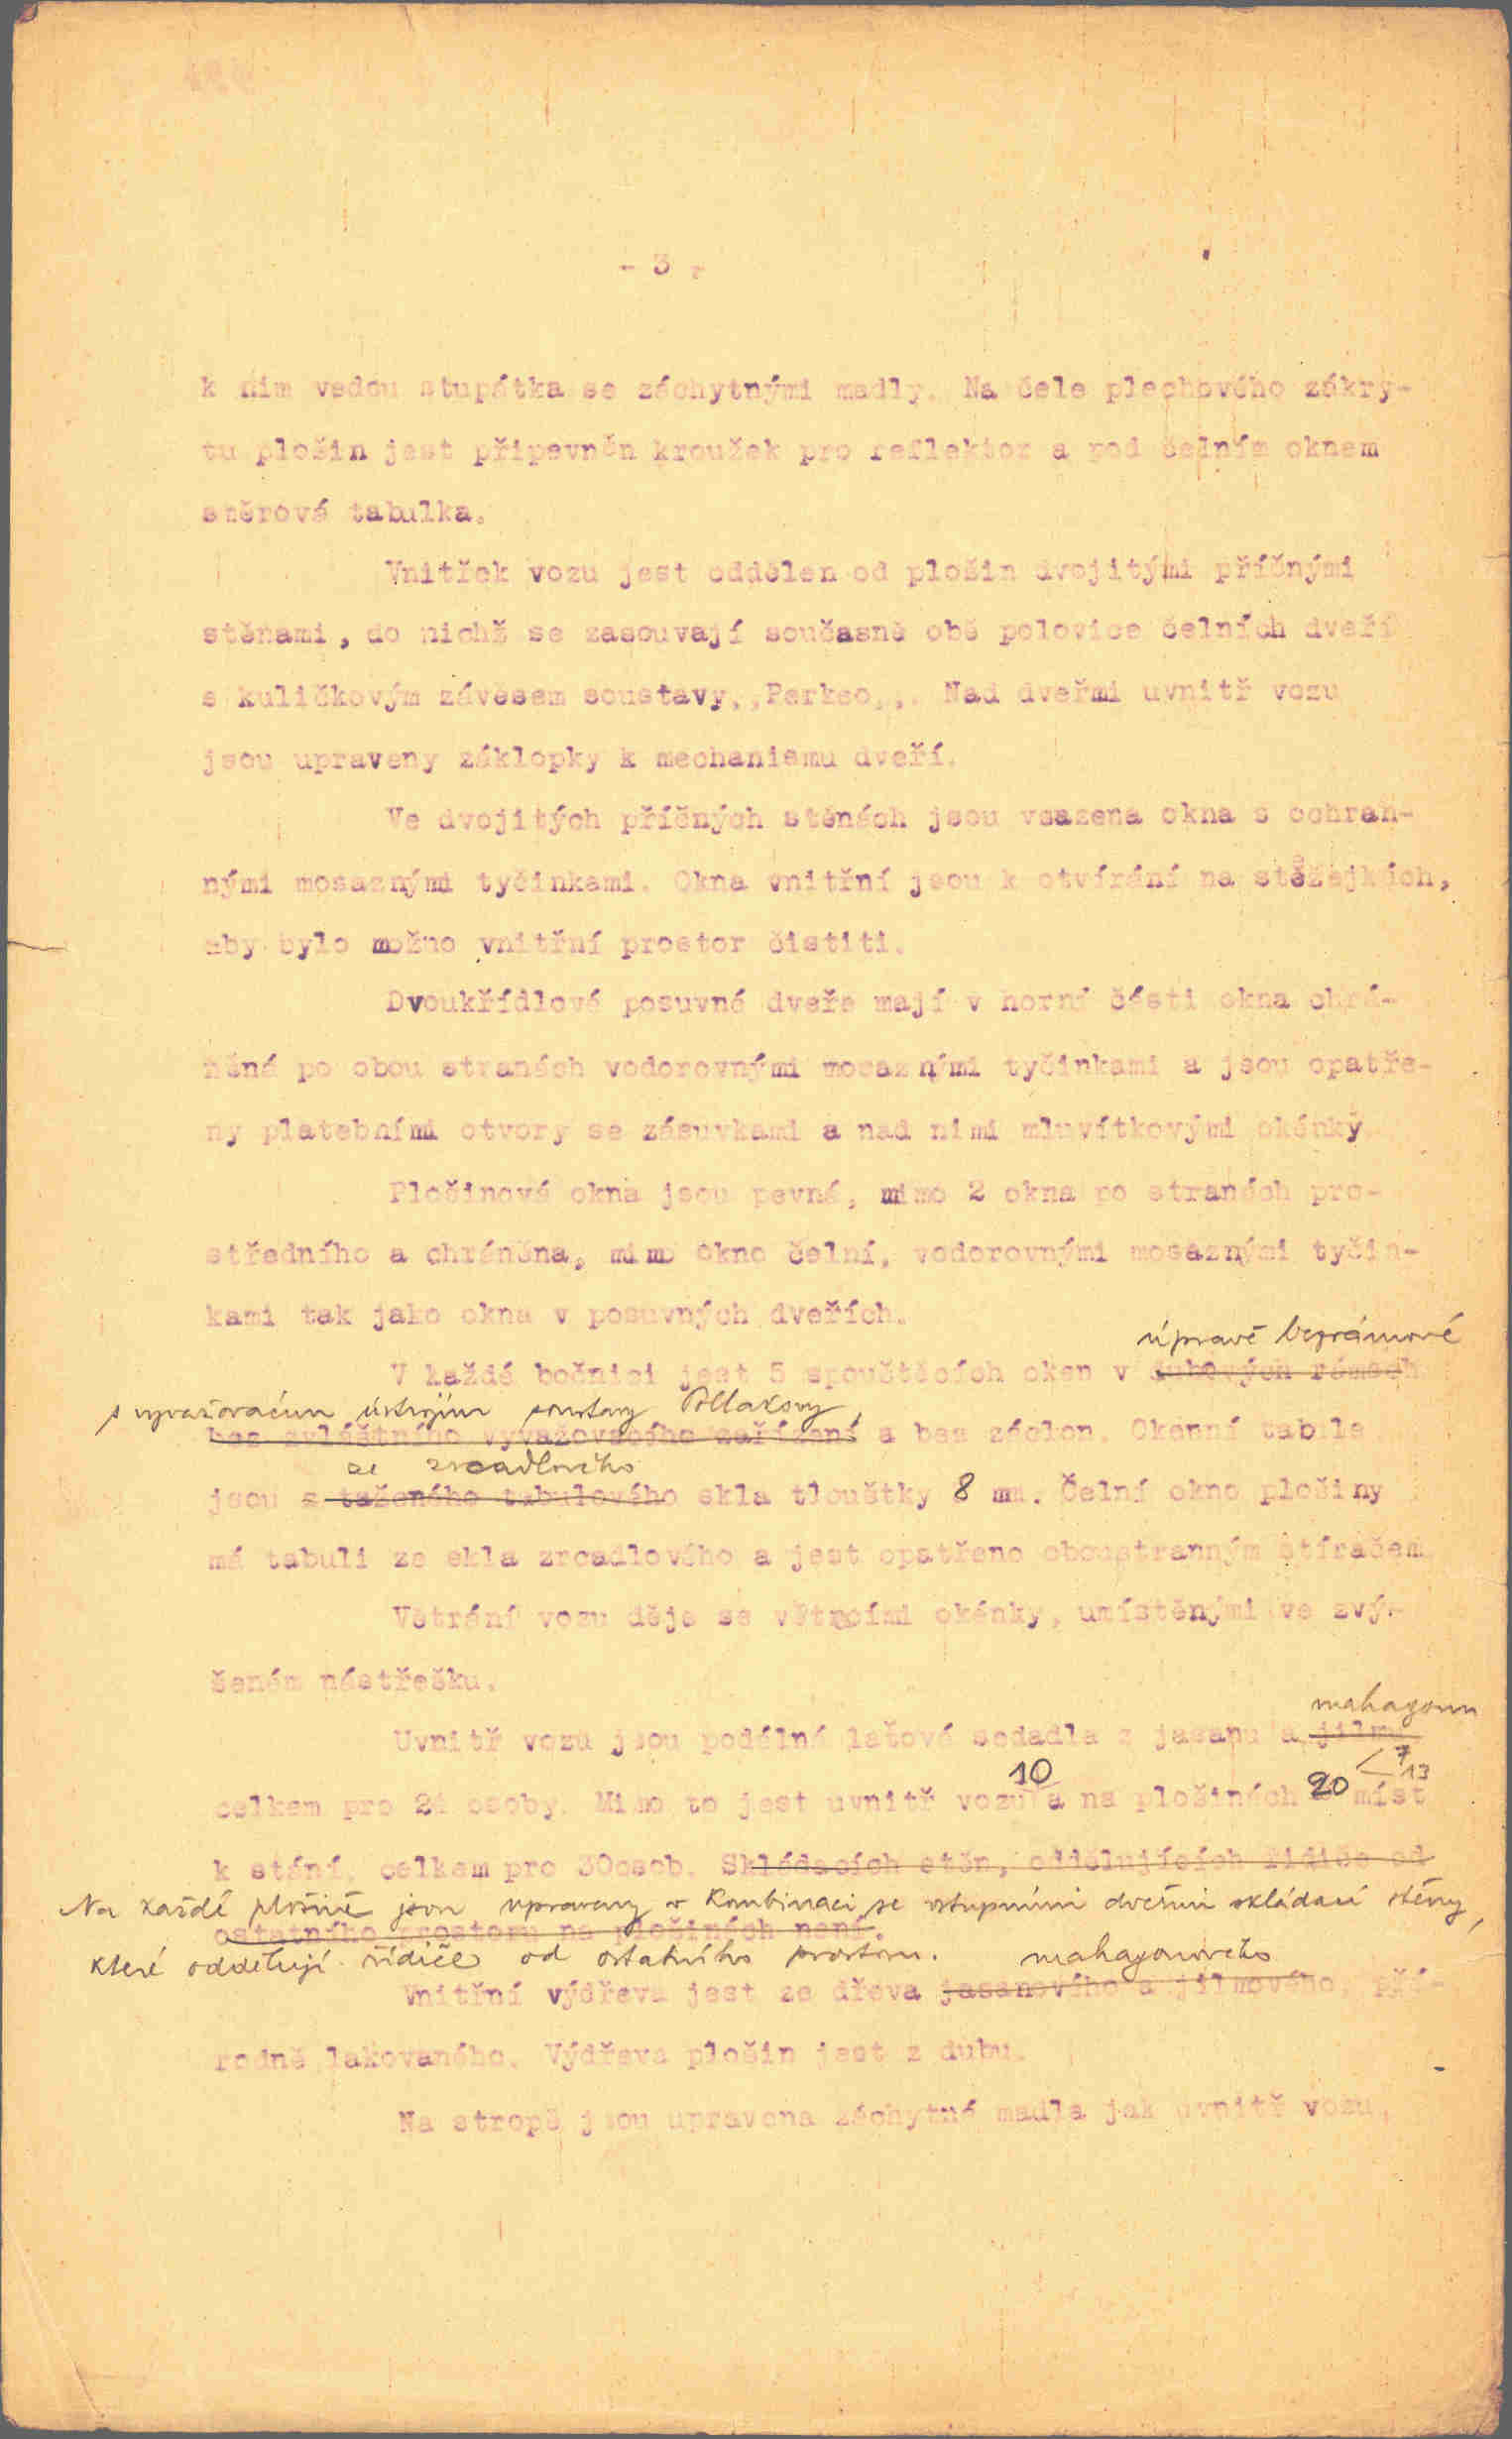 - 3 -
k nim vedou stupátka se záchytnými madly. Na čele plechového zákry-
tu plošin jest připevněn kroužek pro reflektor a pod čelním oknem
směrová tabulka.
Vnitřek vozu jest oddělen od plošin dvojitými příčnými
stěnami, do nichž se zasouvají současně obě polovice čelních dveří
s kuličkovým závěsem soustavy,,Perkeo,,. Nad dveřmi uvnitř vozu
jsou upraveny záklopky k mechanismu dveří.
Ve dvojitých příčných stěnách jsou vsazena okna s ochran-
nými mosaznými tyčinkami. Okna vnitřní jsou k otvírání na stěžejkách,
aby bylo možno vnitřní prostor čistiti.
Dvoukřídlové posuvné dveře mají v horní části okna chrá-
něná po obou stranách vodorovnými mosaznými tyčinkami a jsou opatře-
ny platebními otvory se zásuvkami a nad nimi mluvítkovými okénky
Plošinová okna jsou pevná, mimo 2 okna po stranách pro-
středního a chráněna, mimo okno čelní, vodorovnými mosaznými tyčin-
kami tak jako okna v posuvných dveřích.
úpravě bezrámové
V každé bočnici jest 5 spouštěcích oken v dubových rámech
s vyvažovacím ústrojím soustavy Pollakovy,
bez zvláštního vyvažovacího zařízení a bez záclon. Okenní tabule
ze zrcadlového
jsou z taženého tabulového skla tloušťky 8 mm. Čelní okno plošiny
má tabuli ze skla zrcadlového a jest opatřeno oboustranným stíračem
Větrání vozu děje se větracími okénky, umístěnými ve zvý-
šeném nástřešku.
mahagonu
Uvnitř vozu jsou podélná laťová sedadla z jasanu a jilmu
10 < 7 13
celkem pro 24 osoby. Mimo to jest uvnitř vozu a na plošinách 20 míst
k stání, celkem pro 30osob. Skládacích stěn, oddělujících řidiče od
Na každé plošině jsou upraveny v kombinaci se vstupními dveřmi skládací stěny,
ostatního prostoru na plošinách není.
které oddělují řidiče od ostatního prostoru. mahagonového
Vnitřní výdřeva jest ze dřeva jasanového a jilmového, pří-
rodně lakovaného. Výdřeva plošin jest z dubu.
Na stropě jsou upravena záchytná madla jak uvnitř vozu,